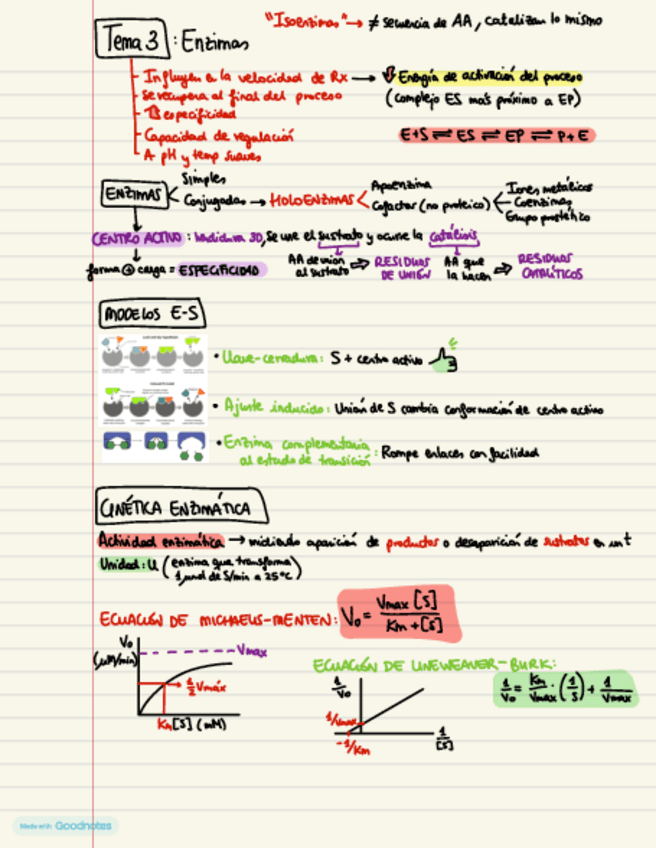 "Isoenzimas" → ≠ secuencia de AA, catalizan lo mismo
Tema 3 : Enzimas
Influyen en la velocidad de Rx → ⇩ Energía de activación del proceso
Se recupera al final del proceso (complejo ES más próximo a EP)
⇧ especificidad
E+S ⇌ ES ⇌ EP ⇌ P+E
Capacidad de regulación
A pH y temp suaves
ENZIMAS
Simples
Conjugadas → HOLOENZIMAS
Apoenzima
Cofactor (no proteico)
Iones metálicos
Coenzimas
Grupo prostético
CENTRO ACTIVO : hendidura 3D, Se une el sustrato y ocurre la catálisis
forma ⊕ carga = ESPECIFICIDAD
AA de unión al sustrato ⇨ RESIDUOS DE UNIÓN
AA que la hacen ⇨ RESIDUOS CATALÍTICOS
MODELOS E-S
• Llave-cerradura: S + centro activo
• Ajuste inducido: Unión de S cambia conformación de centro activo
• Enzima complementaria
al estado de transición : Rompe enlaces con facilidad
CINÉTICA ENZIMÁTICA
Actividad enzimática → midiendo aparición de productos o desaparición de sustratos en un t
Unidad: U (enzima que transforma
1 μmol de S/min a 25°C)
ECUACIÓN DE MICHAELIS-MENTEN: V₀ = Vmax [S] / Km + [S]
V₀
(μM/min)
Vmax
½ Vmáx
Km [S] (mM)
ECUACIÓN DE LINEWEAVER-BURK:
1/V₀ = Km/Vmax · (1/S) + 1/Vmax
1/V₀
1/Vmax
-1/Km
1/[S]
Made with Goodnotes